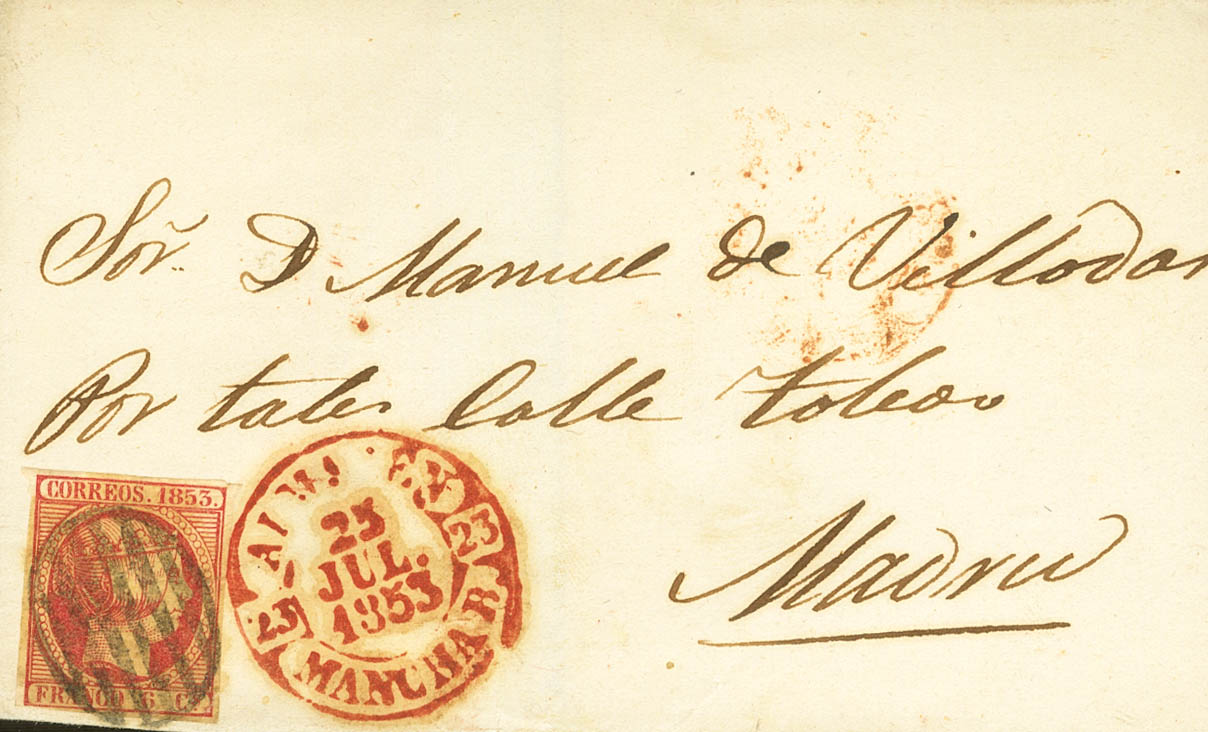 Sor. D Manuel de Villodas
Portales Calle toledo
Madrid
CORREOS. 1853.
FRANCO 6 Cs.
23
JUL.
1853
23
23
MANCHA B.